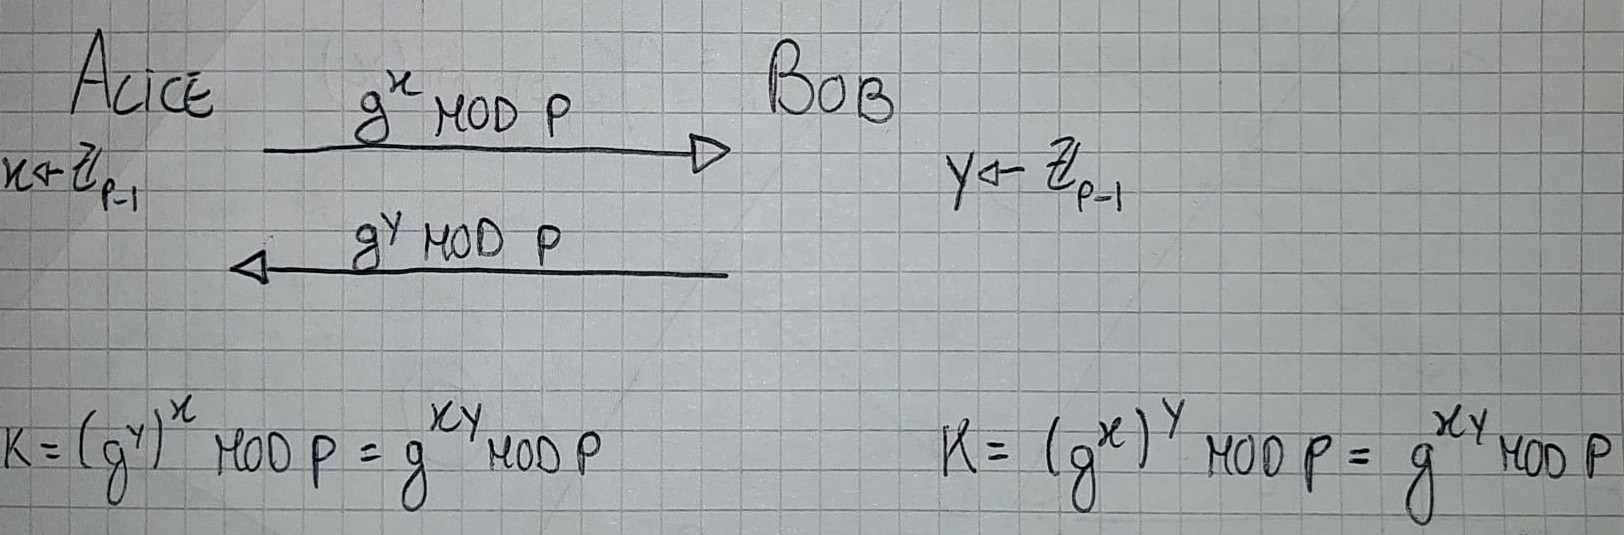 Alice Bob
g^x MOD P
x ← ℤ_{P-1} y ← ℤ_{P-1}
g^y MOD P
K = (g^y)^x MOD P = g^{xy} MOD P K = (g^x)^y MOD P = g^{xy} MOD P